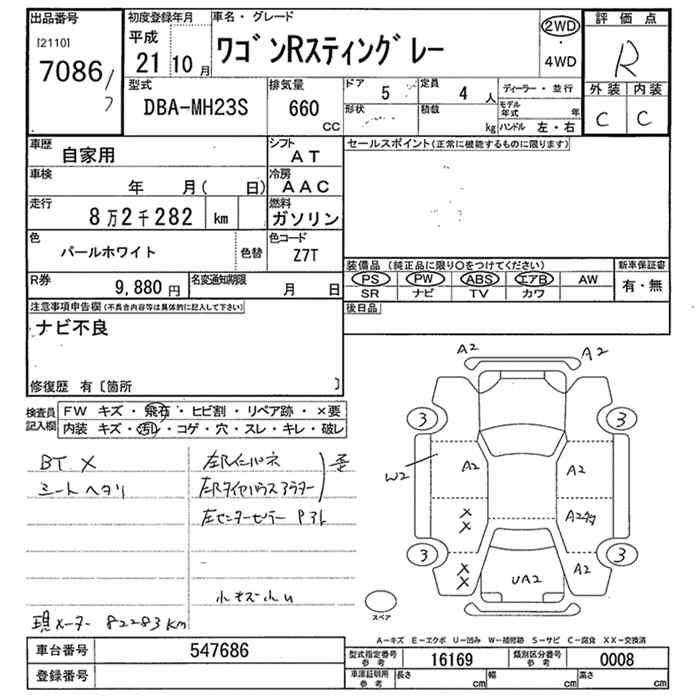 出品番号
[2110]
7086
初度登録年月
平成
21 10 月
車名・グレード
ワゴンRスティングレー
2WD
・
4WD
評価点
R
外装 内装
C C
型式
DBA-MH23S
排気量
660
CC
ドア
5
定員
4 人
形状
積載
kg
ディーラー・並行
モデル年式 年
ハンドル 左・右
車歴
自家用
シフト
AT
車検
年 月( 日)
冷房
AAC
走行
8万2千282 km
燃料
ガソリン
色
パールホワイト
色替
色コード
Z7T
R券
9,880 円
名変通知期限
月 日
セールスポイント(正常に機能するものに限ります)
装備品 (純正品に限り○をつけてください)
PS PW ABS エアB AW
SR ナビ TV カワ
新車保証書
有・無
後日品
注意事項申告欄(不具合内容等は具体的に記入して下さい)
ナビ不良
修復歴 有〔箇所 〕
検査員記入欄
FW キズ・飛石・ヒビ割・リペア跡・×要
内装 キズ・汚れ・コゲ・穴・スレ・キレ・破レ
BT X
シートヘタリ
左Rインパネ
左Rタイヤハウスアウター
歪
左センターピラー P3L
小キズ小U
現メーター 82283km
A2
A2
3
3
W2
A2
A2
X
X
A2
3
3
X
X
UA2
A2
スペア
A-キズ E-エクボ U-凹み W-補修跡 S-サビ C-腐食 XX-交換済
車台番号
547686
登録番号
型式指定番号
参考
16169
類別区分番号
参考
0008
車庫証明用
参考
長さ cm
幅 cm
高さ cm